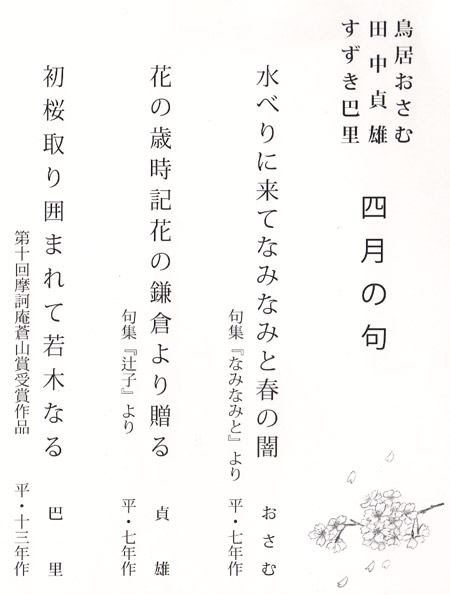 鳥居おさむ
田中貞雄
すずき巴里
四月の句
水べりに来てなみなみと春の闇
句集『なみなみと』より 平・七年作 おさむ
花の歳時記花の鎌倉より贈る
句集『辻子』より 平・七年作 貞雄
初桜取り囲まれて若木なる
第十回摩訶庵蒼山賞受賞作品 平・十三年作 巴里